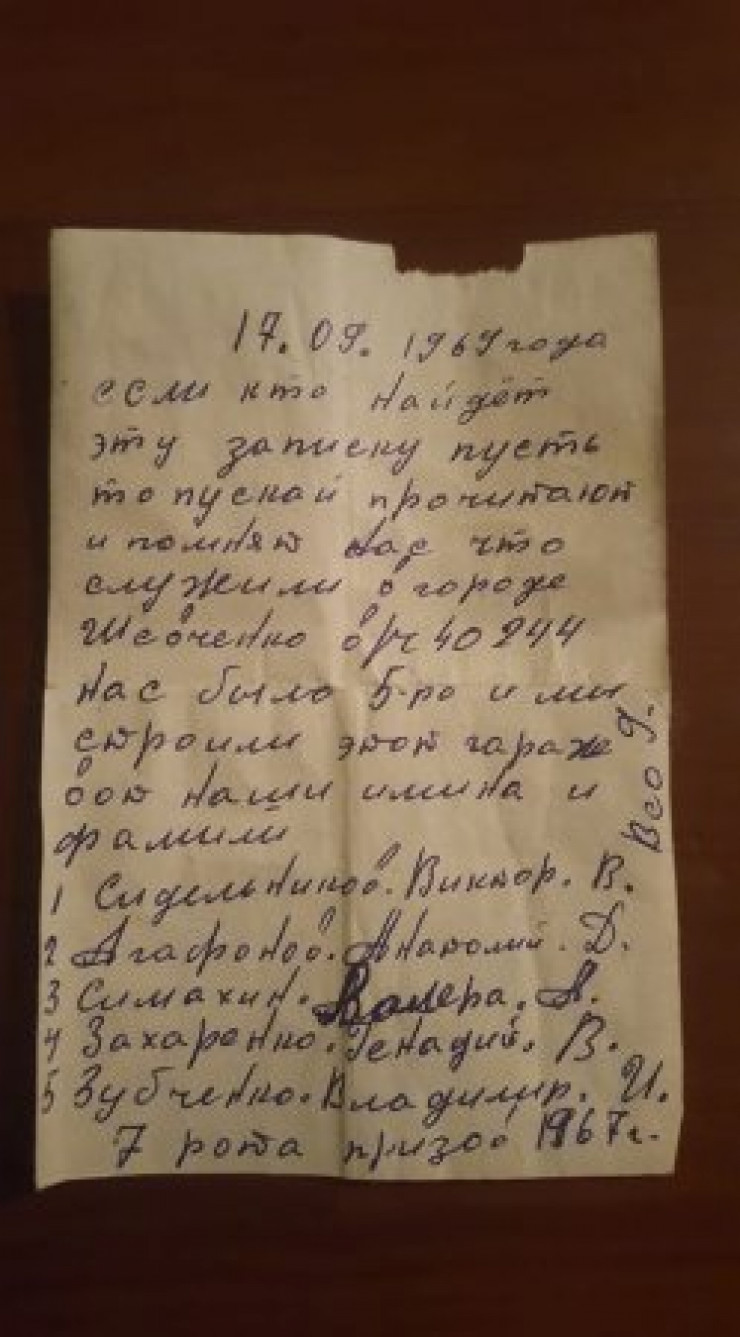 17.09. 1969 года
если кто найдёт
эту записку пусть
то пускай прочитают
и помнят нас что
служили в городе
Шевченко в/ч 40244
нас было 5-ро и ми
строили этот гараж
вот наши имина и
фамили
1 Сидельников. Виктор. В.
2 Агафонов. Анатолий. Д.
3 Симахин. Валера. А.
4 Захаренко. Генадий. В.
5 Зубченко. Владимир. И.
7 рота призов 1967г.